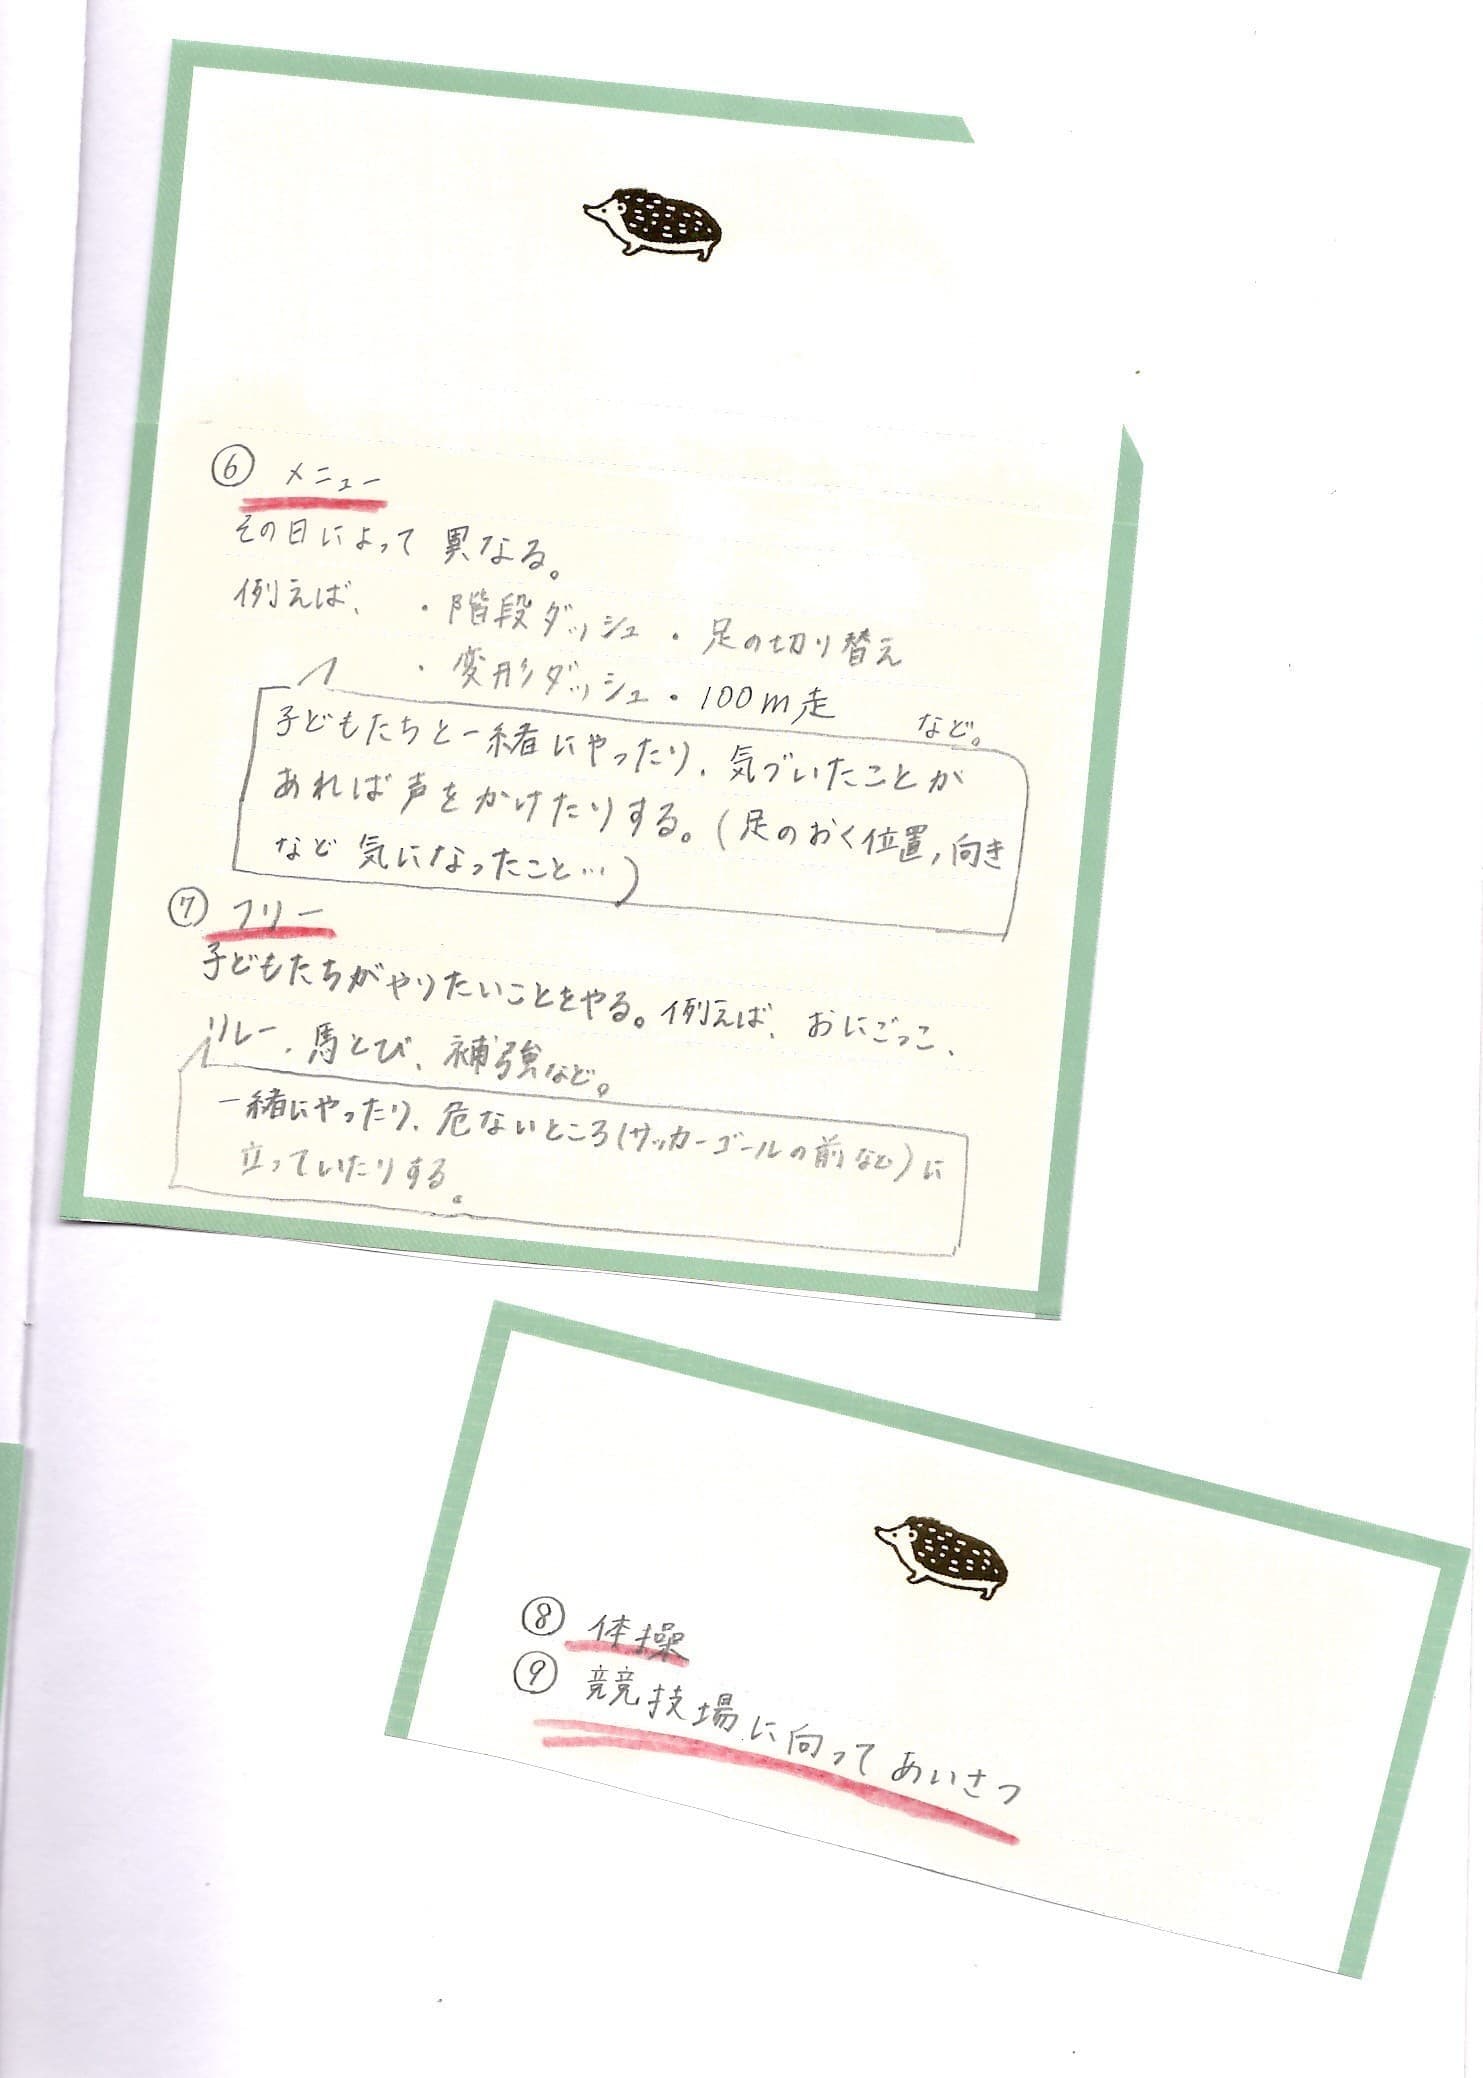 ⑥ メニュー
その日によって 異なる。
例えば、 ・階段ダッシュ ・足の切り替え
・変形ダッシュ ・100m走 など。
子どもたちと一緒にやったり、気づいたことが
あれば声をかけたりする。(足のおく位置,向き
など 気になったこと…)
⑦ フリー
子どもたちがやりたいことをやる。例えば、おにごっこ、
リレー、馬とび、補強など。
一緒にやったり、危ないところ(サッカーゴールの前など)に
立っていたりする。
⑧ 体操
⑨ 競技場に向ってあいさつ